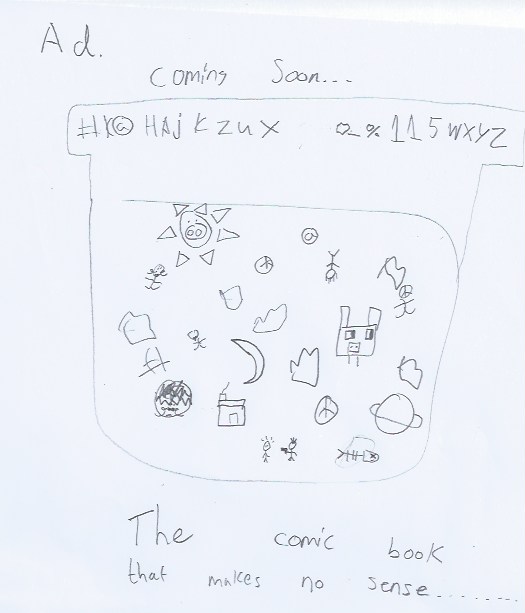 Ad.
Coming Soon...
#1X@ HAjKZUX 02%115WXYZ
The comic book
that makes no sense........